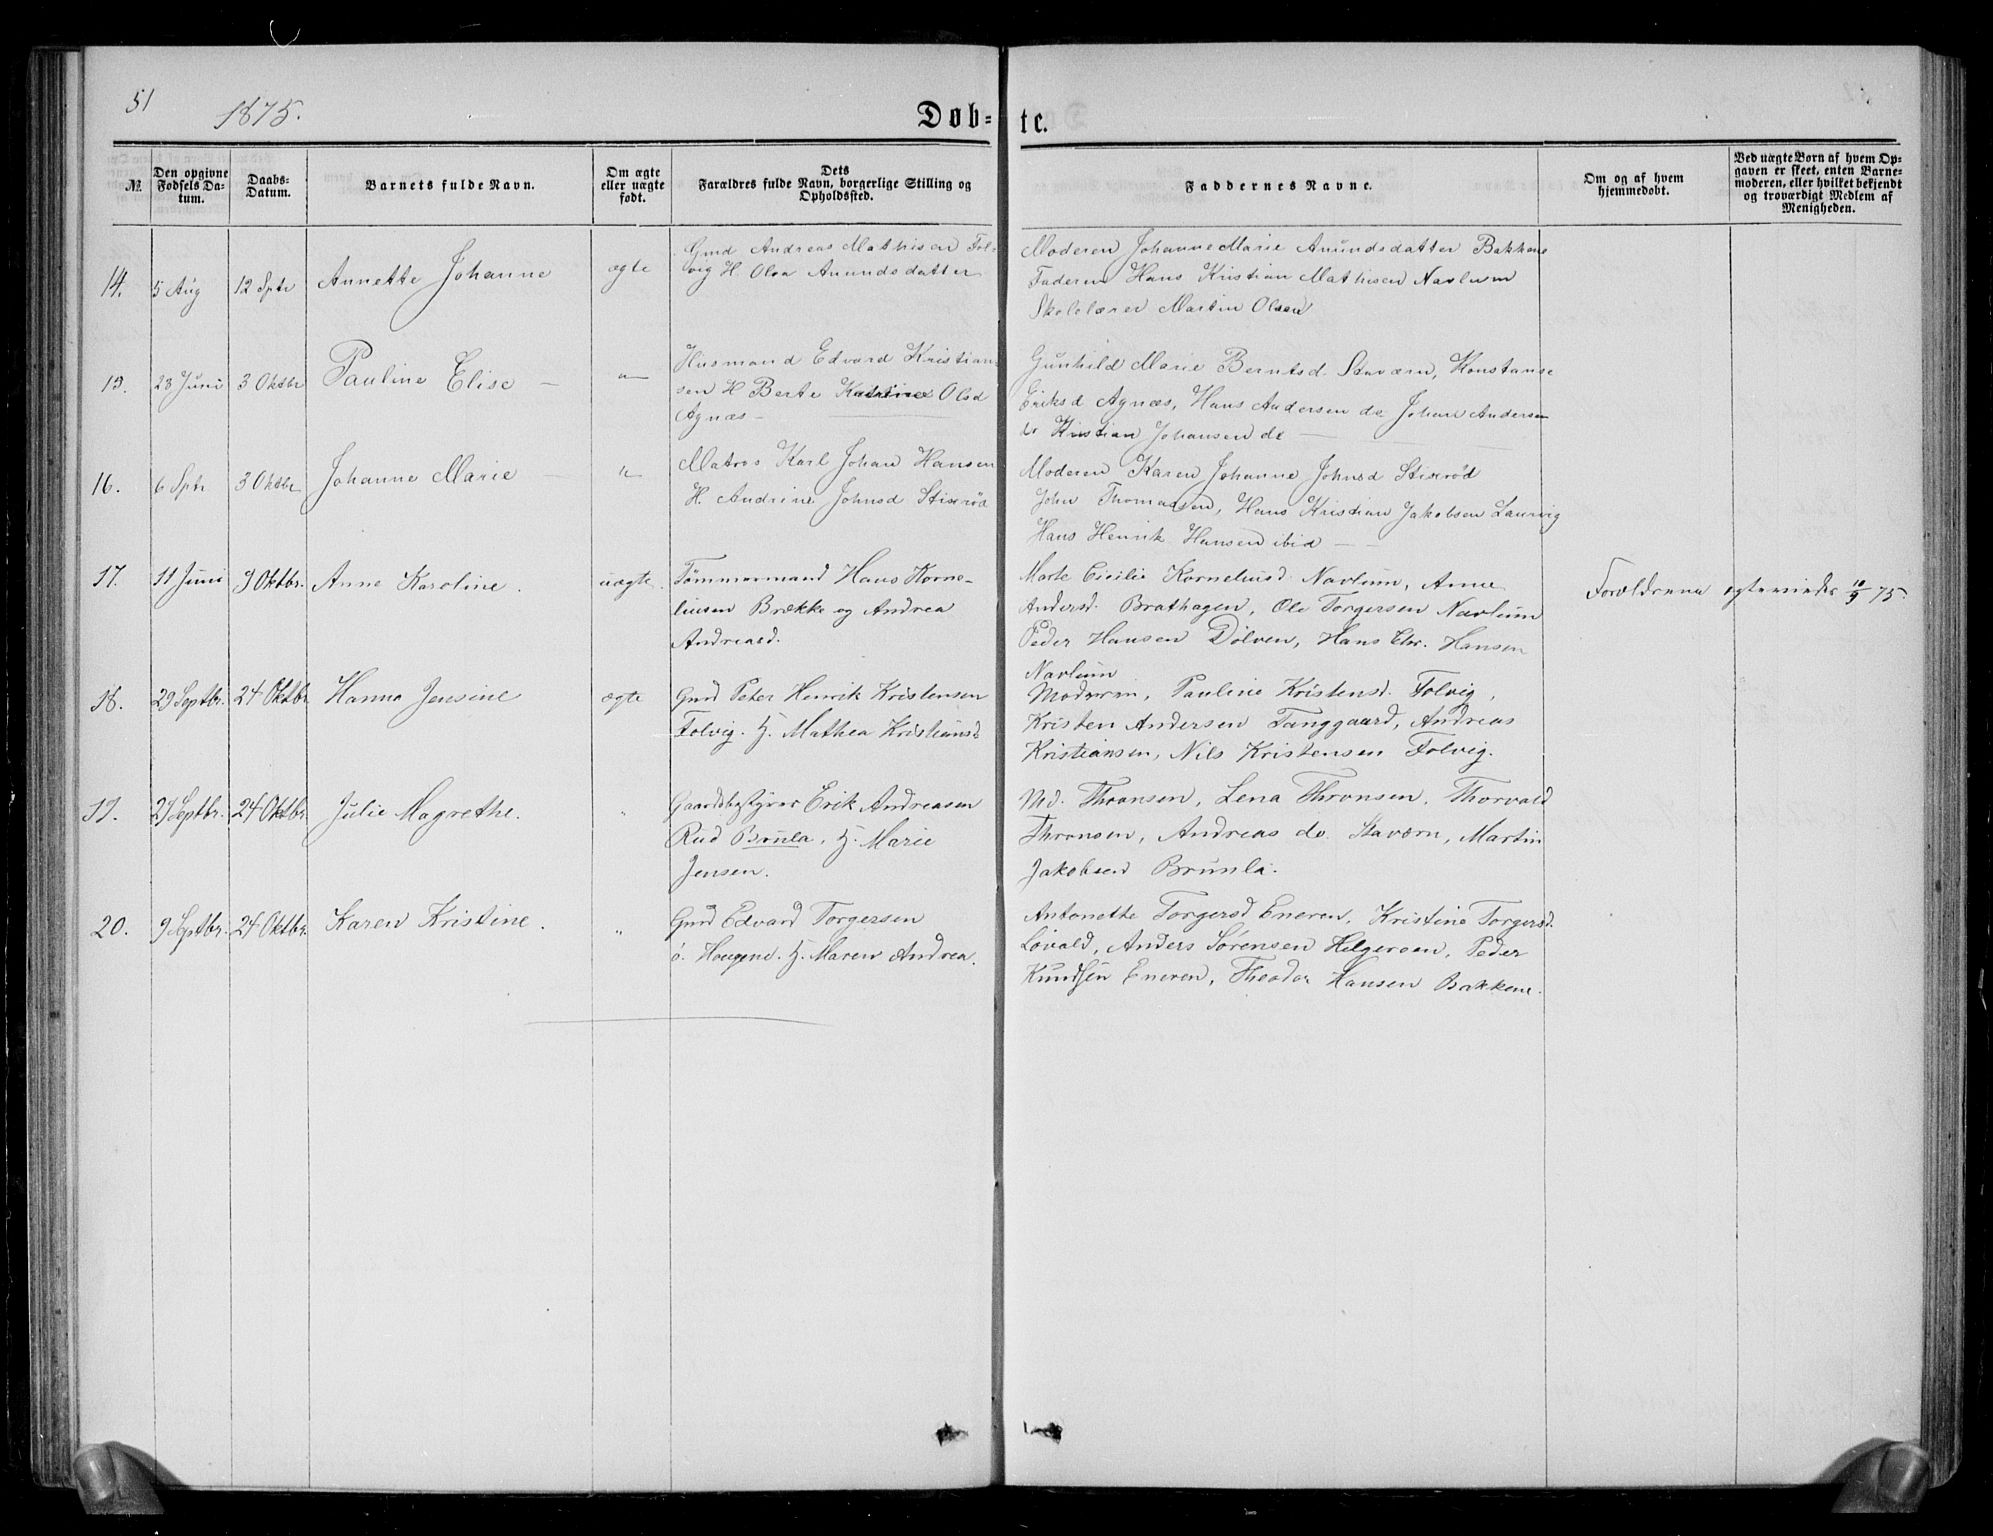 51
1875.
Døb-
te.
№
Den opgivne Fødsels Da-tum.
Daabs-Datum.
Barnets fulde Navn.
Om ægte eller uægte født.
Dets Farældres fulde Navn, borgerlige Stilling og Opholdssted.
Faddernes Navne.
Om og af hvem hjemmedøbt.
Ved uægte Børn af hvem Op-gaven er skeet, enten Barne-moderen, eller hvilket bekjendt og troværdigt Medlem af Menigheden.
14. 5 Aug 12 Sptr Annette Johanne ægte
Gmd Andreas Mathisen Fol-
vig H. Olea Anundsdatter
Moderen Johanne Marie Anundsdatter Bakkene
Faderen Hans Kristian Mathisen Navlum
Skolelærer Martin Olsen
15. 23 Juni 3 Oktbr Pauline Elise — "
Husmand Edvard Kristian-
sen H Berte Katrine Olsd
Agnæs —
Gunhild Marie Berntsd. Staværn, Konstanse
Eriksd Agnæs, Hans Andersen do Johan Andersen
do Kristian Johansen do —
16. 6 Sptr 3 Oktbr Johanne Marie — "
Matros Karl Johan Hansen
H. Andrine Johnsd Stixrød
Moderen Karen Johanne Johnsd Stixrød
John Thomassen, Hans Kristian Jakobsen Laurvig
Hans Henrik Hansen ibid — —
17. 11 Juni 9 Oktbr. Anne Karoline. uægte.
Tømmermand Hans Korne-
liusen Brække og Andrea
Andreasd.
Marte Cicilie Korneliusd. Navlum, Anne
Andersd. Brathagen, Ole Torgersen Navlum
Peder Hansen Dølven, Hans Chr. Hansen
Navlum
Forældrene egteviede 10/9 75
18. 29 Septbr. 24 Oktbr Hanna Jensine ægte
Gmd Peter Henrik Kristensen
Folvig. H. Mathea Kristiansd
Moderen, Pauline Kristensd. Folvig,
Kristen Andersen Tanggaard, Andreas
Kristiansen, Nils Kristensen Folvig.
19. 27 Septbr. 24 Oktbr. Julie Magrethe. "
Gaardsbestyrer Erik Andreasen
Rud Brunla, H. Marie
Jensen.
Md. Thronsen, Lena Thronsen, Thorvald
Thronsen, Andreas do. Staværn, Martin
Jakobsen Brunla.
20. 9 Septbr. 24 Oktbr. Karen Kristine. "
Gmd Edvard Torgersen
ø. Hougene. H. Maren Andrea.
Antonette Torgersd Eneren, Kristine Torgersd.
Løvald, Anders Sørensen Helgeroen, Peder
Kundsen Eneren, Theodor Hansen Bakkene.